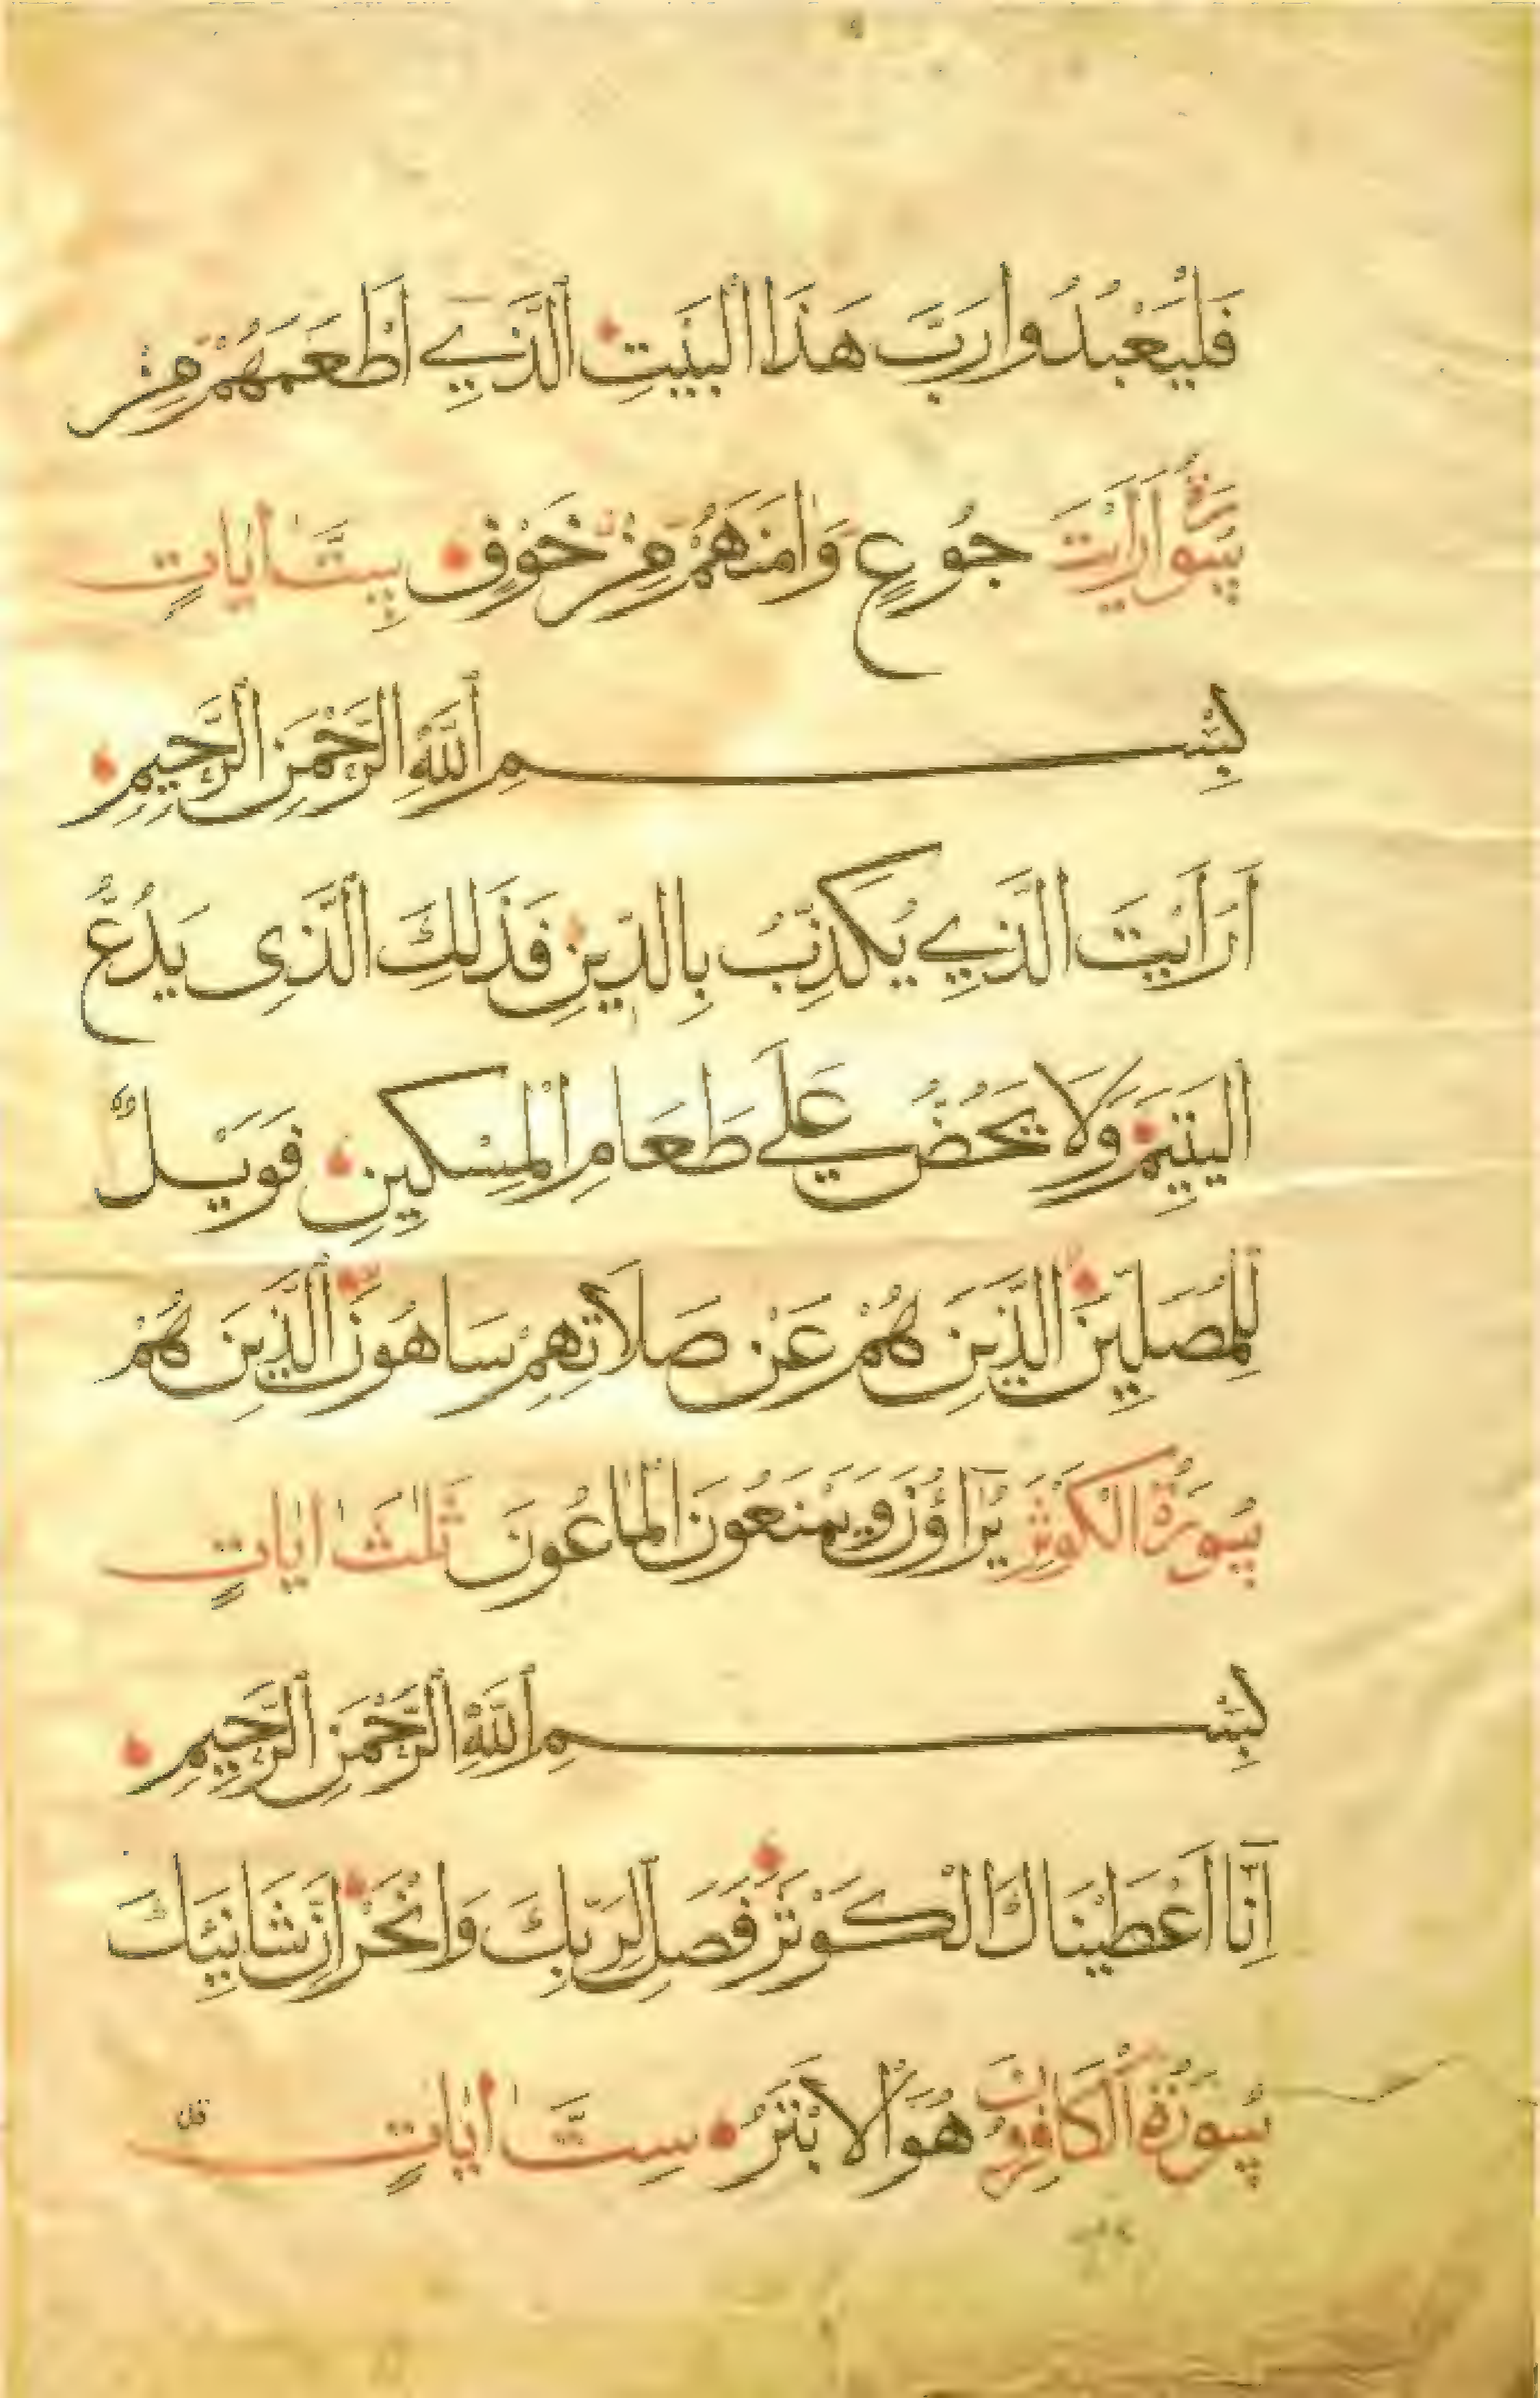 فَلْيَعْبُدُوا رَبَّ هَذَا الْبَيْتِ الَّذِي أَطْعَمَهُمْ مِنْ
سُورَةُ أَرَأَيْتَ جُوعٍ وَآمَنَهُمْ مِنْ خَوْفٍ سِتُّ آيَاتٍ
بِسْمِ اللَّهِ الرَّحْمَنِ الرَّحِيمِ
أَرَأَيْتَ الَّذِي يُكَذِّبُ بِالدِّينِ فَذَلِكَ الَّذِي يَدُعُّ
الْيَتِيمَ وَلَا يَحُضُّ عَلَى طَعَامِ الْمِسْكِينِ فَوَيْلٌ
لِلْمُصَلِّينَ الَّذِينَ هُمْ عَنْ صَلَاتِهِمْ سَاهُونَ الَّذِينَ هُمْ
سُورَةُ الْكَوْثَرِ يُرَاؤُنَ وَيَمْنَعُونَ الْمَاعُونَ ثَلٰثُ اٰيَاتٍ
بِسْمِ اللَّهِ الرَّحْمَنِ الرَّحِيمِ
إِنَّا أَعْطَيْنَاكَ الْكَوْثَرَ فَصَلِّ لِرَبِّكَ وَانْحَرْ إِنَّ شَانِئَكَ
سُورَةُ الْكَافِرُونَ هُوَ الْأَبْتَرُ سِتُّ اٰيَاتٍ
قل